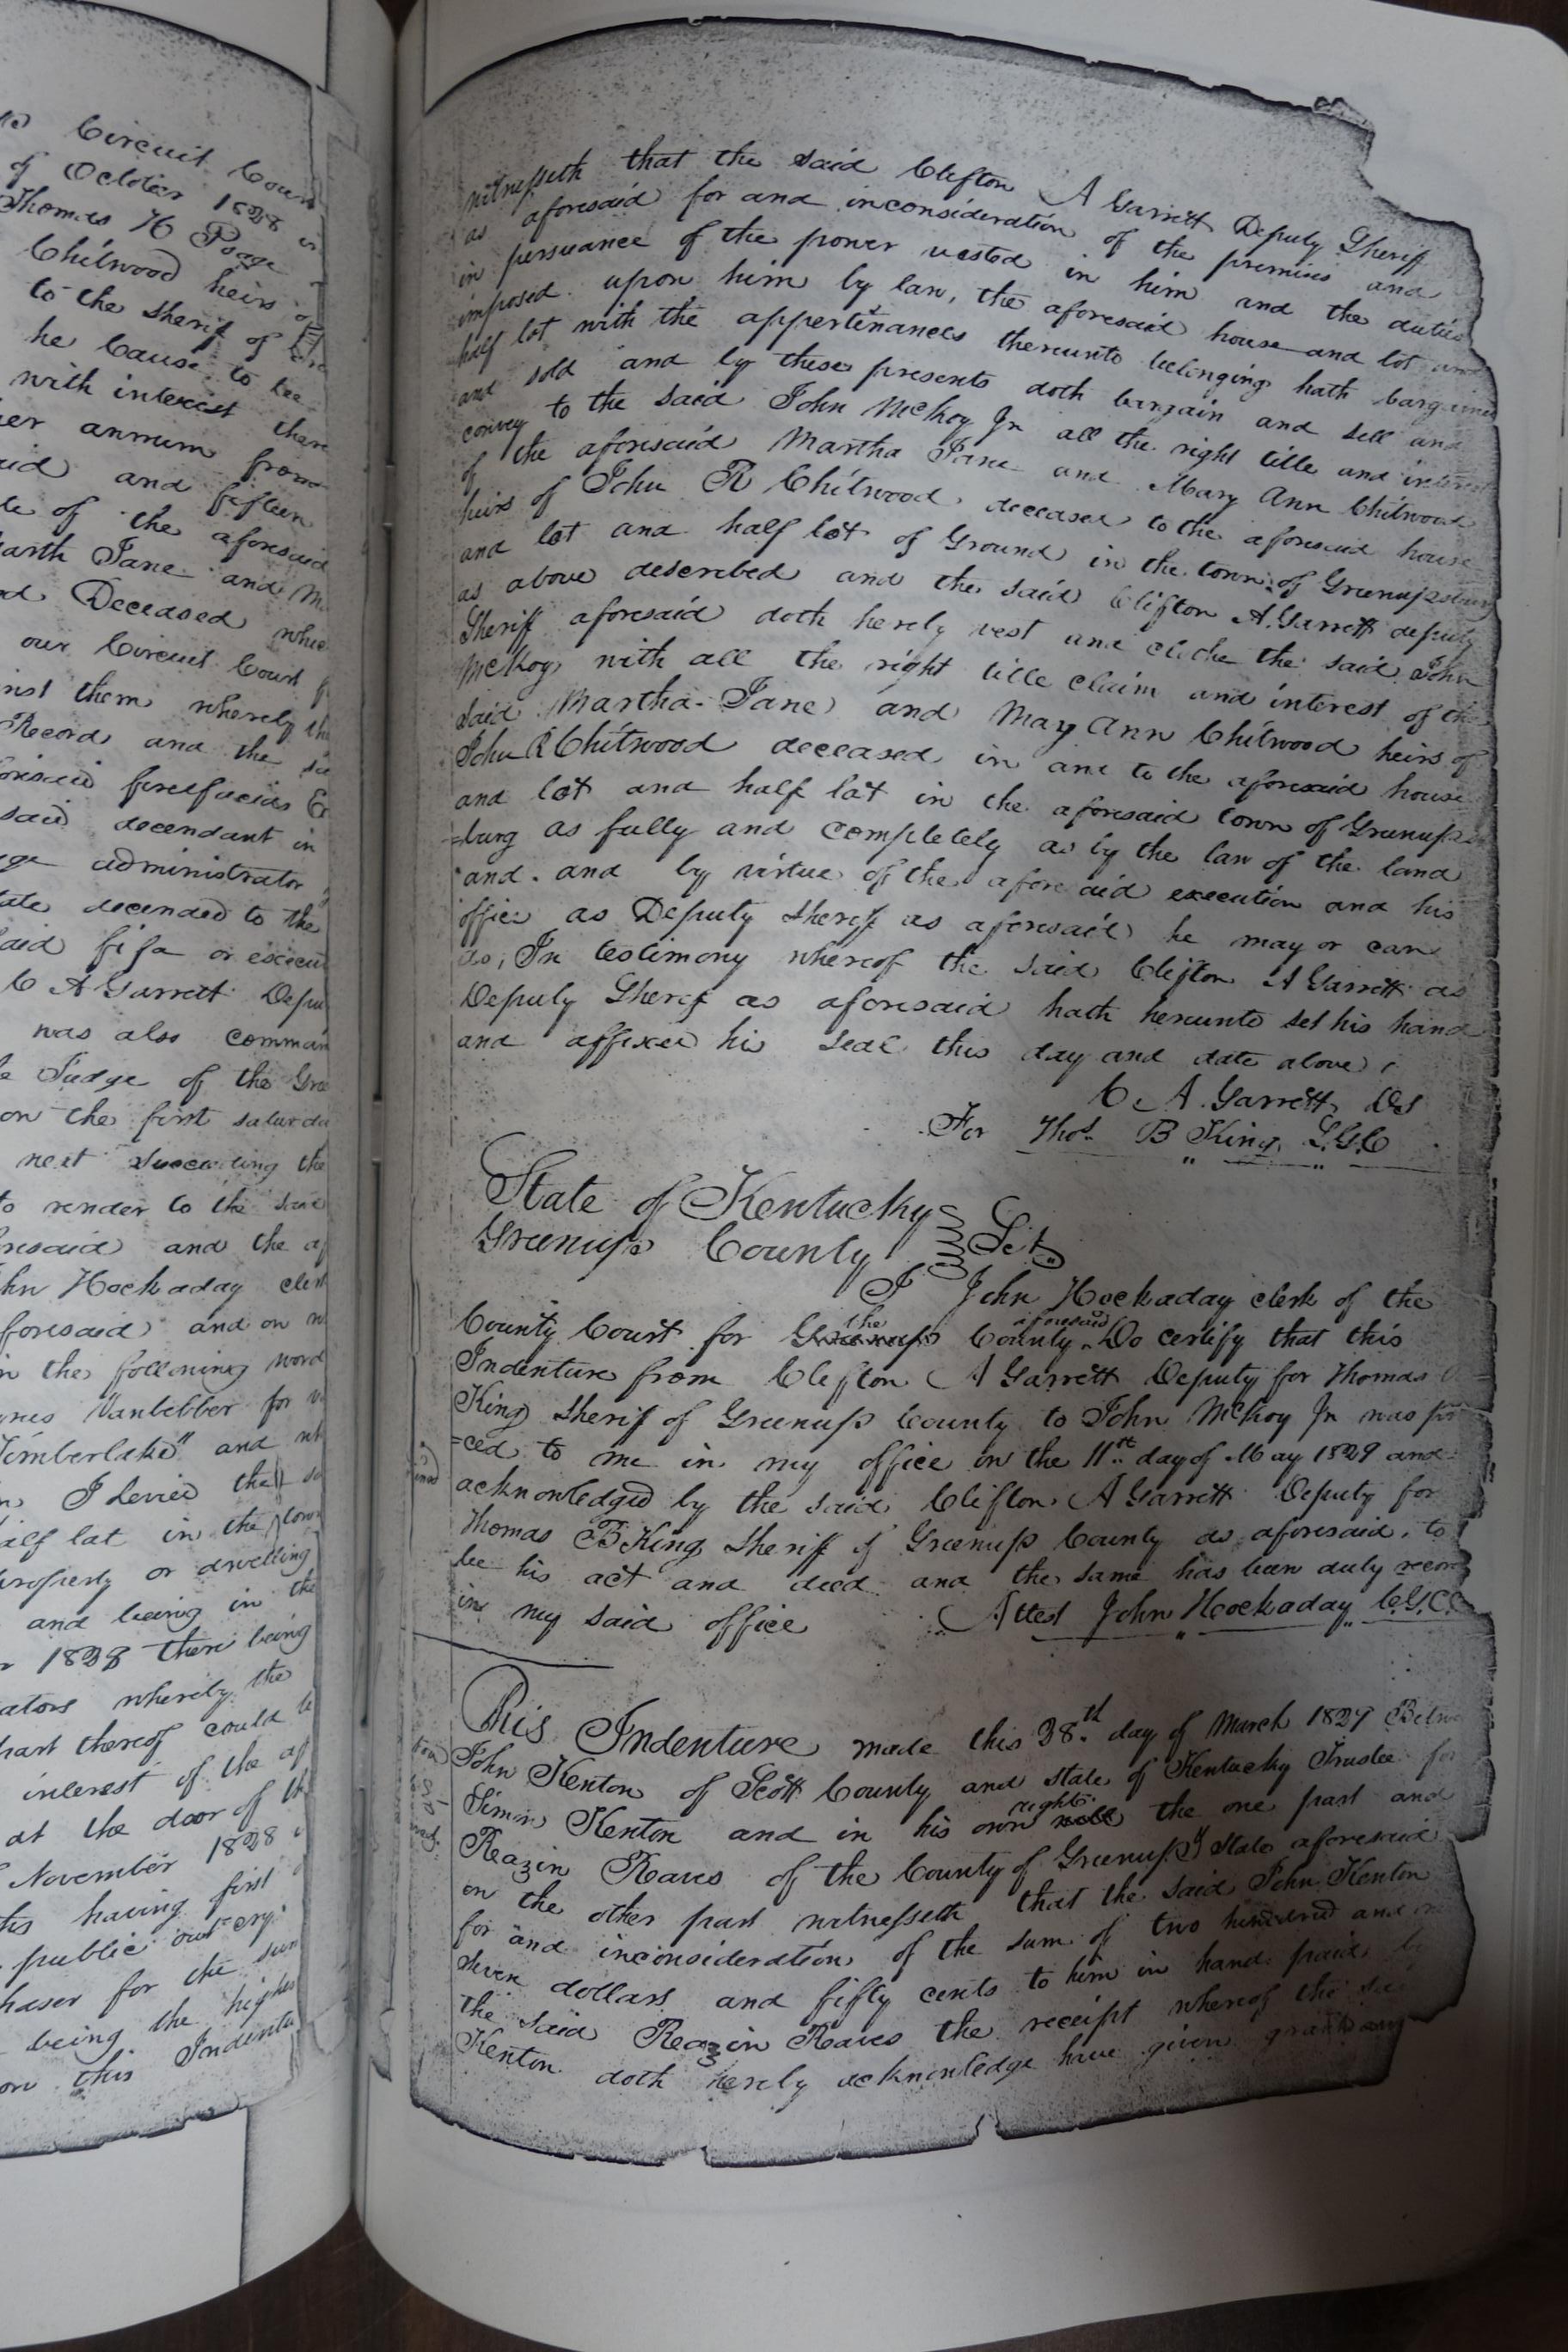 Circuit Cour
of October 1828 in
Thomas H Poage
Chitwood heirs of
to the Sherif of
he Cause to be
with interest there
er annum from
aid and fifteen
le of the aforesaid
arth Jane and M
d Deceased whic
our Circuit Court
inst them whereby th
Record and the sa
foresaid fierefacias
said decendant in
ge administrator
ate decended to the
aid fi fa or execu
C A Garrett Depu
was also comman
e Judge of the Gre
on the first saturda
next Succeeding the
to render to the said
resaid and the af
hn Hockaday clerk
foresaid and on
in the following word
nes Vanbebber for
Timberlake" and
n I Levied the
alf lat in the town
property or dwelling
and being in the
r 1828 there being
ators whereby the
part thereof could
interest of the af
at the door of th
November 1828
his having first
public out cry
chaser for the sum
being the highes
on this Indentu
witnesseth that the said Clifton A Garrett Deputy Sheriff
as aforesaid for and inconsideration of the premises and
in persuance of the power vested in him and the duties
imposed upon him by law, the aforesaid house and lot and
half lot with the appertenances thereunto belonging hath bargained
and sold and by these presents doth bargain and sell and
convey to the said John McKoy Jr all the right title and interest
of the aforesaid Martha Jane and Mary Ann Chitwood
heirs of John R Chitwood deceased to the aforesaid house
and lot and half lot of Ground in the town of Greenupsburg
as above described and the said Clifton A. Garrett deputy
Sheriff aforesaid doth hereby vest and clothe the said John
McKoy with all the right title claim and interest of the
said Martha Jane and May Ann Chitwood heirs of
John R Chitwood deceased in and to the aforesaid house
and lot and half lat in the aforesaid town of Greenups
=burg as fully and completely as by the law of the land
and. and by virtue of the aforesaid execution and his
office as Deputy Sheriff as aforesaid he may or can
do, In testimony whereof the said Clifton A Garrett as
Deputy Sheref as aforesaid hath hereunto set his hand
and affixed his Seal this day and date above
C A. Garrett, DS
For Thos. B King, S.G.C
State of Kentucky
Greenup County Sct.
I John Hockaday clerk of the
County Court for the County aforesaid Do certify that this
Indenture from Clifton A Garrett Deputy for Thomas
King Sherif of Greenup County to John McKoy Jr was pro
=ced to me in my office on the 11th day of May 1829 and
acknowledged by the said Clifton A Garrett Deputy for
Thomas B King Sheriff of Greenup County as aforesaid, to
be his act and deed and the same has been duly recor
in my said office Attest John Hockaday C.G.C.C
This Indenture made this 28th day of March 1829 Betwe
John Kenton of Scott County and state of Kentucky Trustee for
Simon Kenton and in his own right the one part and
Reazin Reaves of the County of Greenup & State aforesaid
on the other part witnesseth that the said John Kenton
for and inconsideration of the sum of two hundred and
seven dollars and fifty cents to him in hand paid by
the said Reazin Reaves the receipt whereof the sa
Kenton doth hereby acknowledge have given grant